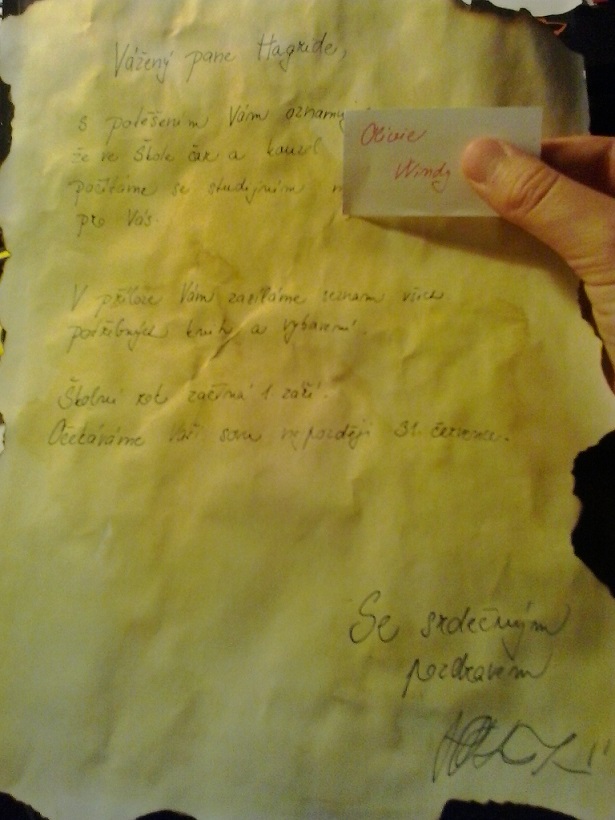 Vážený pane Hagride,
s potěšením Vám oznamuj
že ve Škole čar a kouzel
počítáme se studijním m
pro Vás.
Olivie
Windy
V příloze Vám zasíláme seznam všech
potřebných knih a vybavení.
Školní rok začíná 1. září.
Očekáváme Vaši sovu nejpozději 31. července.
Se srdečným
pozdravem